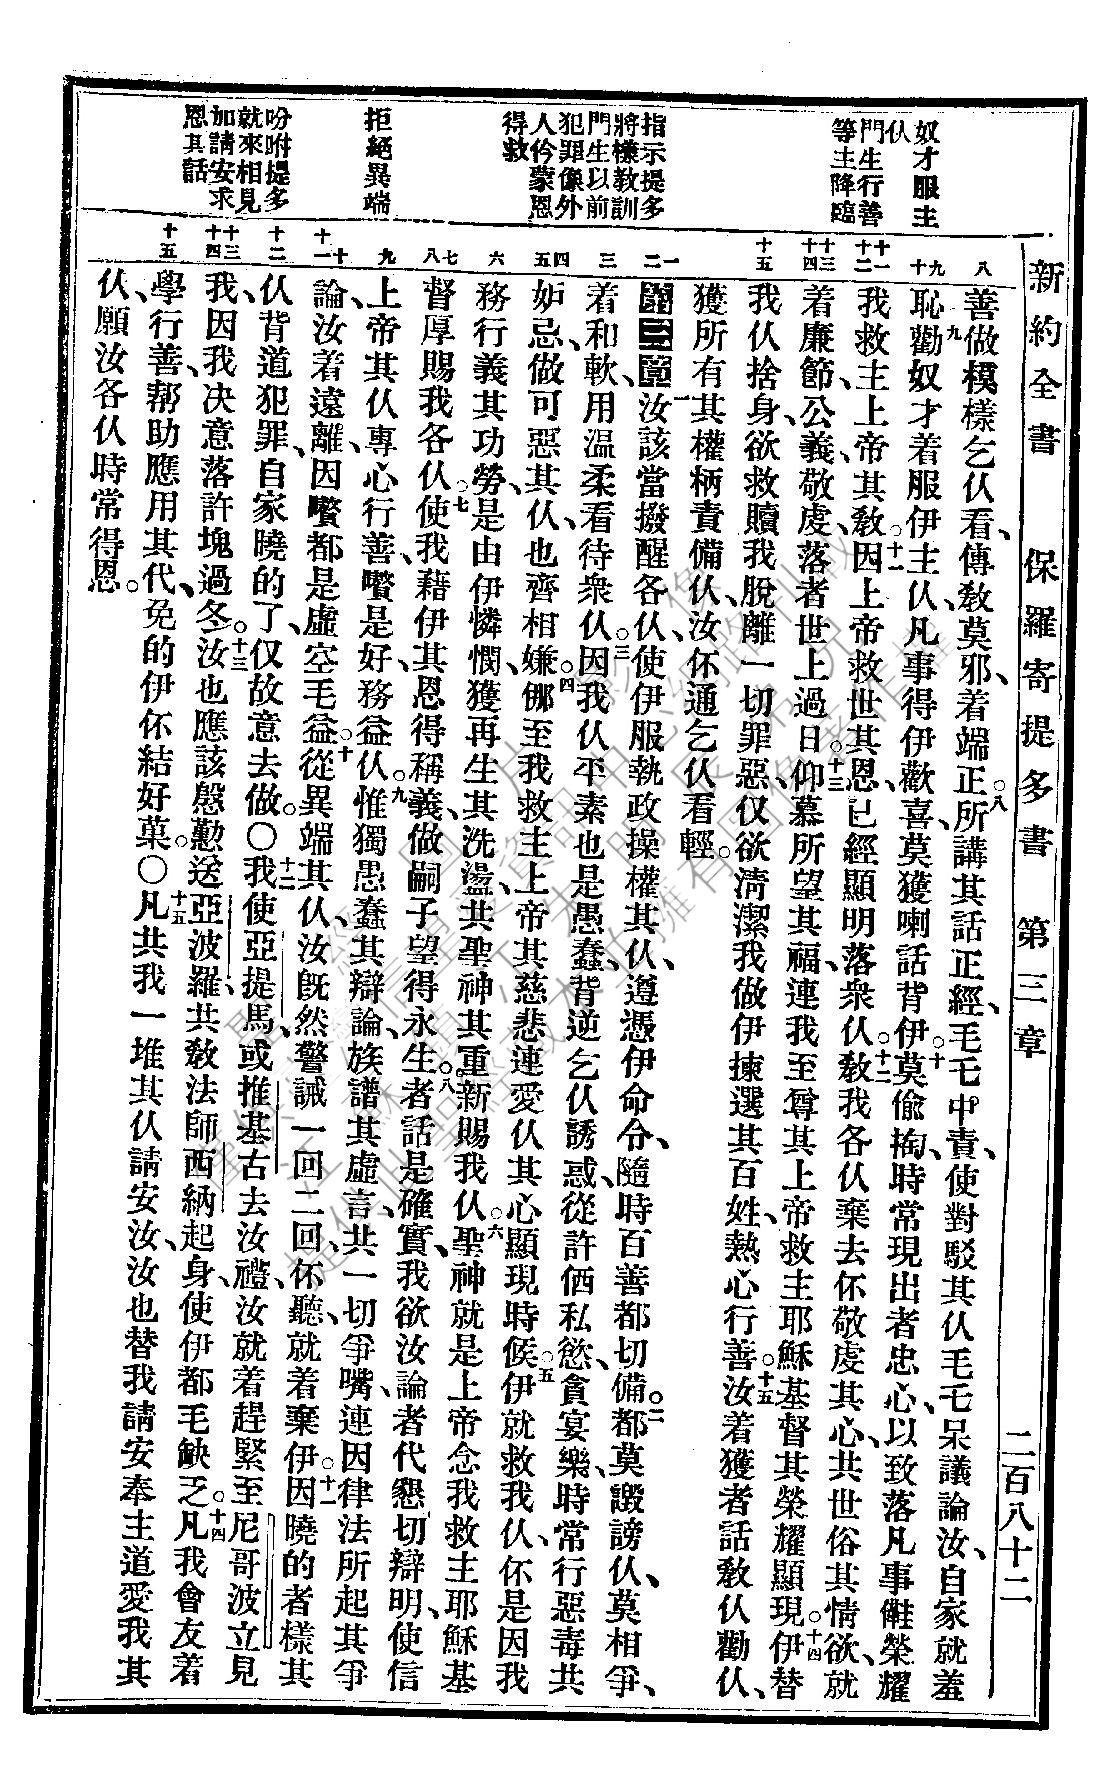 新約全書 保羅寄提多書 第三章 二百八十二
奴才服主
仈門生行善
等主降臨
指示提多
將樣教訓
門生以前
犯罪像外
人仱蒙恩
得救
拒絕異端
吩咐提多
就來相見
加請安求
恩其話
八
善做模樣乞仈看、傳敎莫邪、着端正。八所講其話正經、毛乇中責、使對駁其仈毛乇呆議論汝、自家就羞
恥。九勸奴才着服伊主仈、凡事得伊歡喜、莫獲喇話背伊。十莫偸掏、時常現出者忠心、以致落凡事
我救主上帝其敎。十一因上帝救世其恩、已經顯明落衆仈。十二敎我各仈棄去伓敬虔其心、共世俗其情欲、就
着廉節、公義、敬虔、落者世上過日。十三仰慕所望其福、連我至尊其上帝救主耶穌基督其榮耀顯現。十四伊替
我仈捨身、欲救贖我脫離一切罪惡、仅欲淸潔我做伊揀選其百姓、熱心行善。十五汝着獲者話敎仈勸仈、
獲所有其權柄責備仈、汝伓通乞仈看輕。
第三章 一汝該當撥醒各仈、使伊服執政操權其仈、遵憑伊命令、隨時百善都切備。二都莫譭謗仈、莫相爭、
着和軟、用溫柔看待衆仈。三因我仈平素也是愚蠢、背逆、乞仈誘惑、從許価私慾、貪宴樂、時常行惡毒共
妒忌、做可惡其仈、也齊相嫌。四㑚至我救主上帝其慈悲連愛仈其心顯現時候、五伊就救我仈、伓是因我
務行義其功勞、是由伊憐憫、獲再生其洗盪、共聖神其重新賜我仈。六聖神就是上帝念我救主耶穌基
督厚賜我各仈。七使我藉伊其恩得稱義、做嗣子望得永生。八者話是確實、我欲汝論者代懇切辯明、使信
上帝其仈、專心行善、嚽是好、務益仈。九惟獨愚蠢其辯論、族譜其虛言、共一切爭嘴、連因律法所起其爭
論、汝着遠離、因嚽都是虛空毛益。十從異端其仈、汝旣然警誡一回二回、伓聽、就着棄伊。十一因曉的者樣其
仈、背道犯罪、自家曉的了、仅故意去做。〇十二我使亞提馬、或推基古去汝禮、汝就着趕緊至尼哥波立見
我、因我决意落許塊過冬。十三汝也應該慇懃送亞波羅共敎法師西納起身、使伊都毛缺乏。十四凡我會友着
學行善、帮助應用其代、免的伊伓結好菓。〇十五凡共我一堆其仈請安汝、汝也替我請安奉主道愛我其
仈、願汝各仈時常得恩。